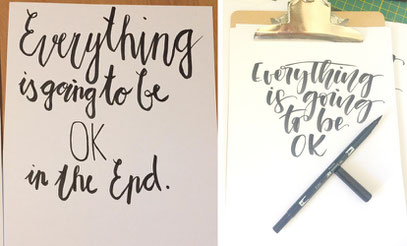 Everything
is going to be
OK
in the End.
Everything
is going
to be
OK